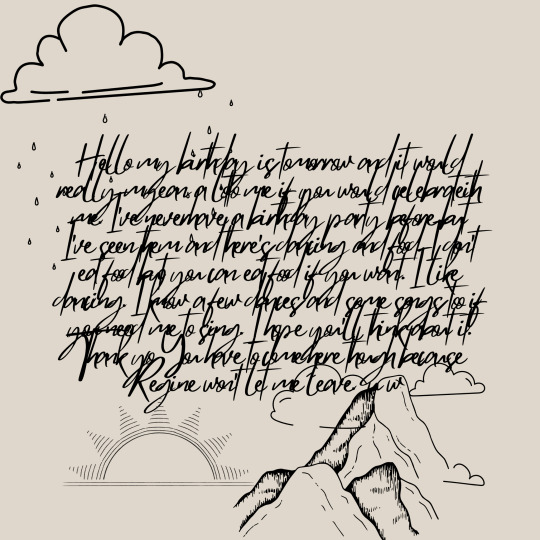 Hello my birthday is tomorrow and it would
really mean a lot to me if you would celebrate it
me. I've never have a birthday party before but
I've seen them and there's dancing and food. I don't
eat food but you can eat food if you want. I like
dancing. I know a few dances and some songs too if
you need me to sing. I hope you'll think about it.
Thank you. You have to come here though because
Regine won't let me leave